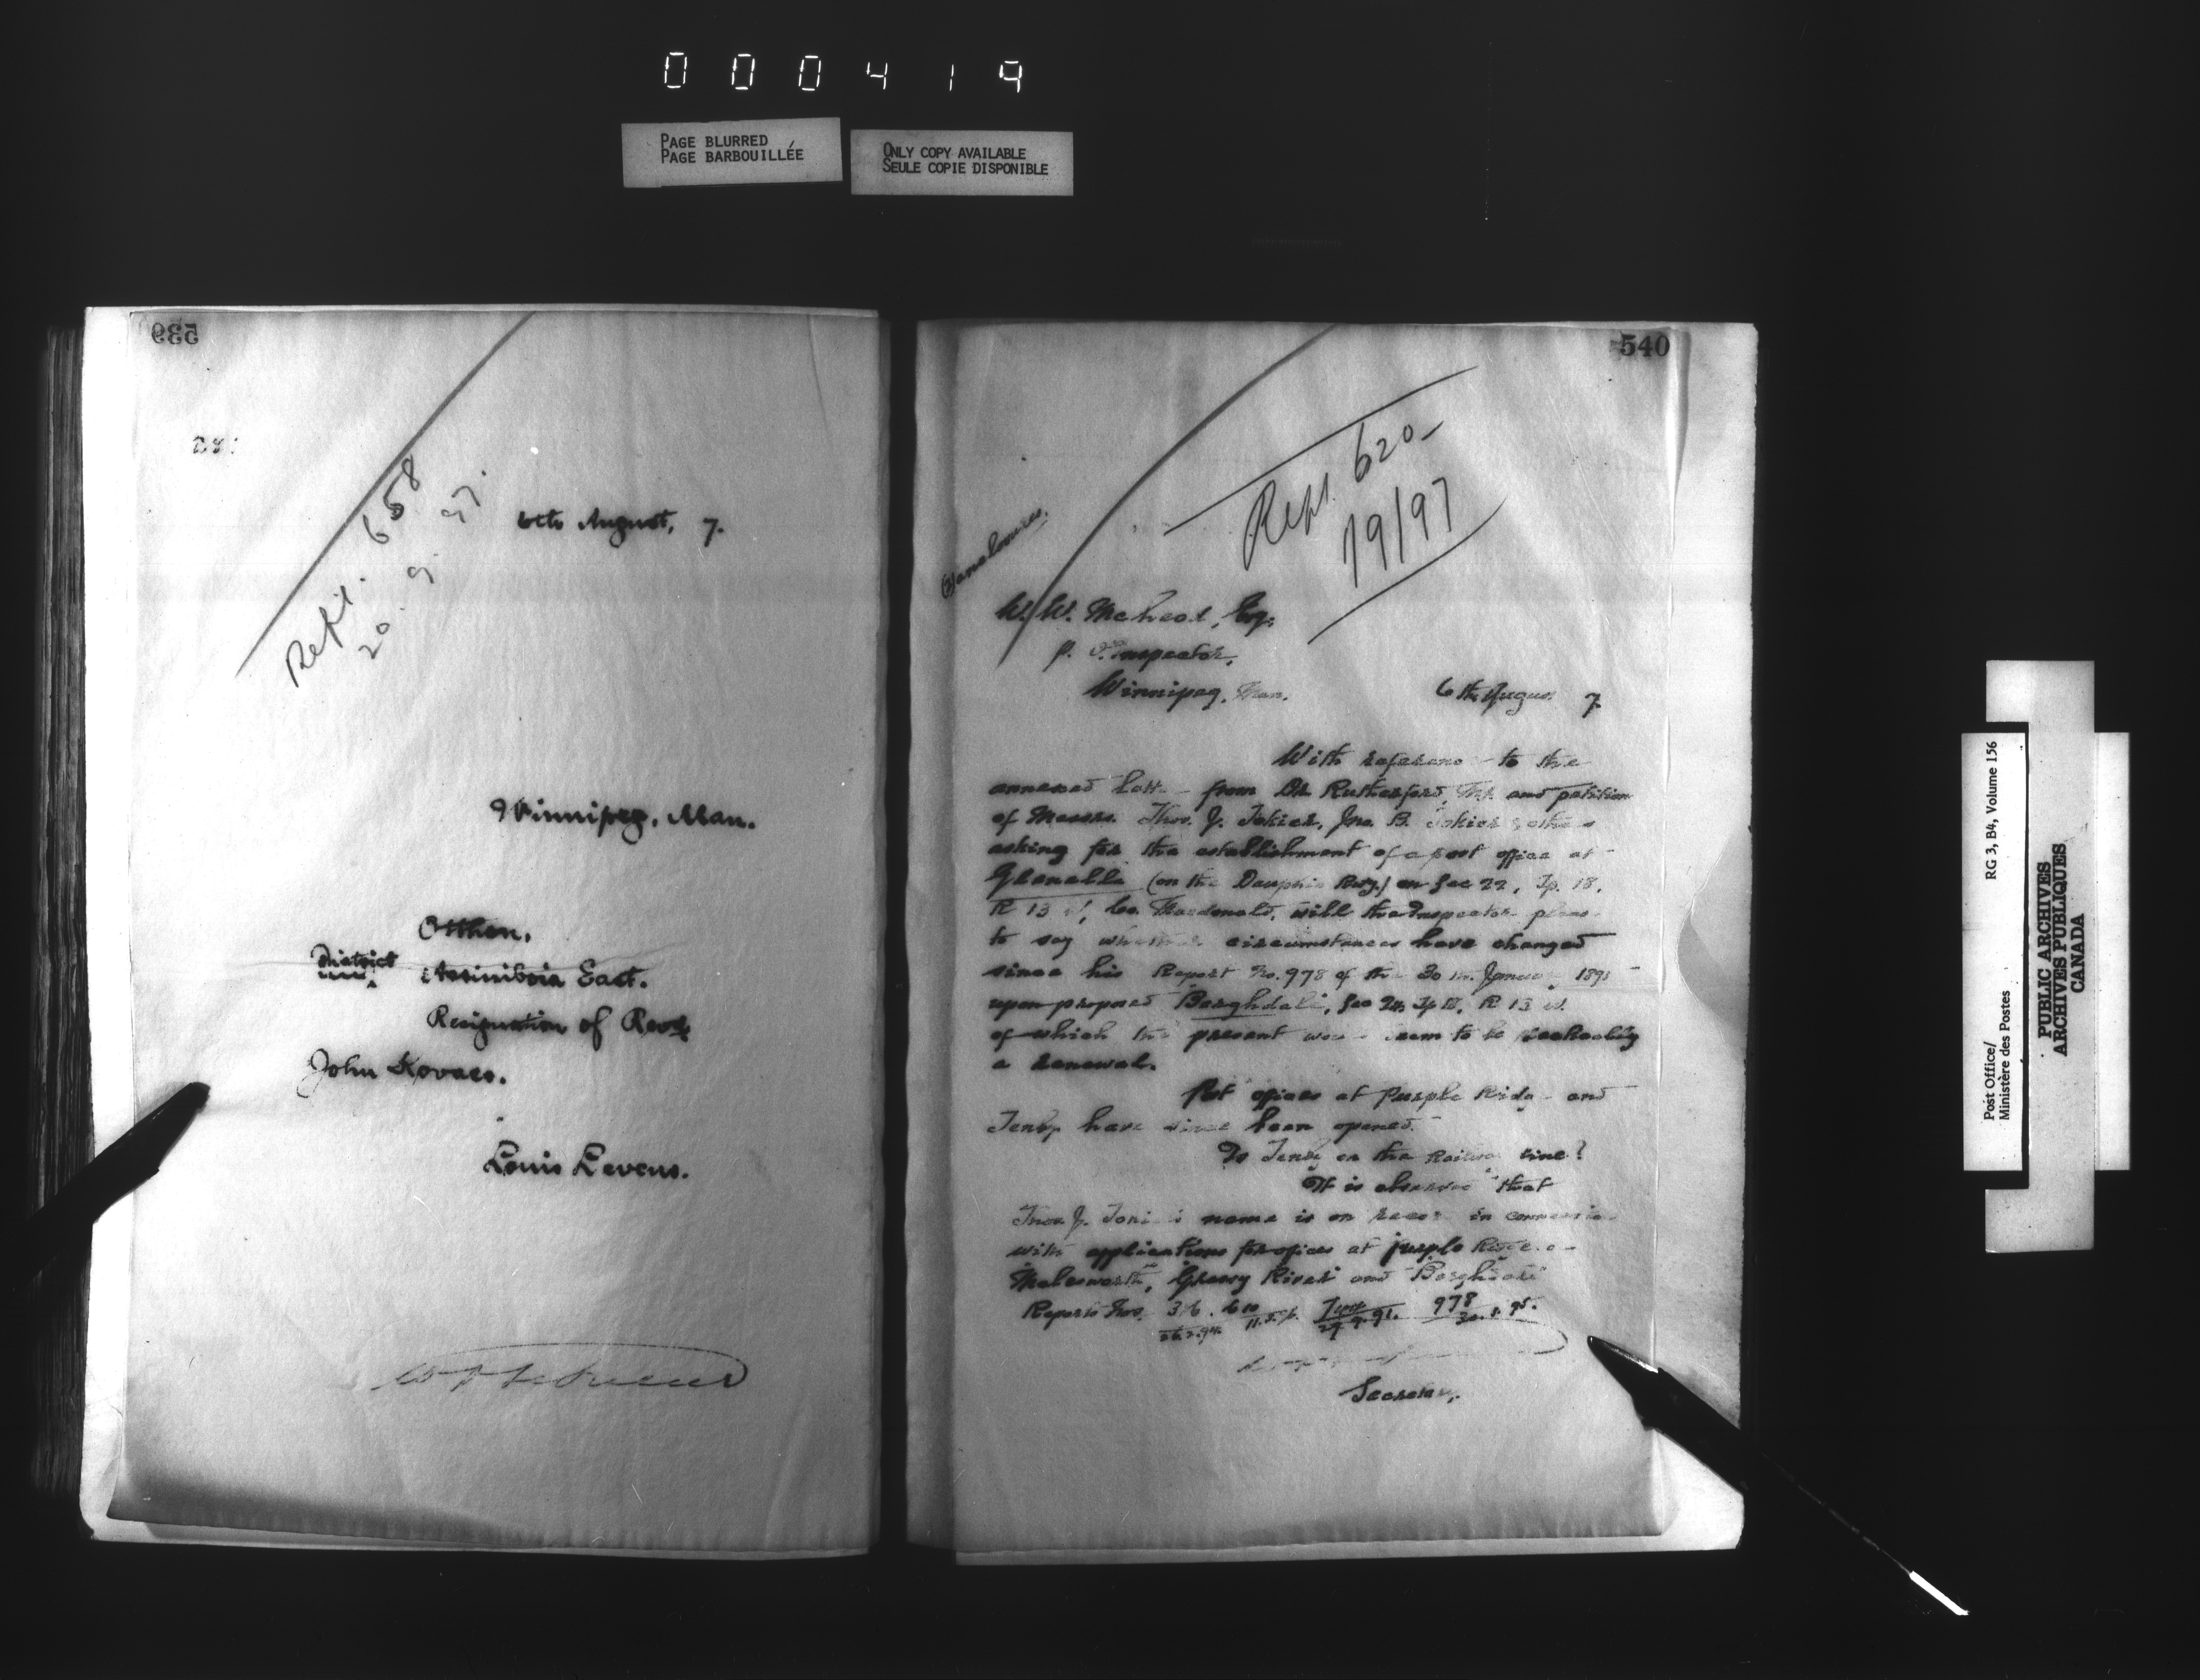 000419
PAGE BLURRED
PAGE BARBOUILLÉE
ONLY COPY AVAILABLE
SEULE COPIE DISPONIBLE
539
Repd. 658
20. 9. 97.
6th August, 7.
Winnipeg, Man.
Otthon,
District
Assiniboia East.
Resignation of Revd
John Kovacs.
Louis Levens.
540
Repd. 620
19/97
W. W. McLeod, Esq.
P. O. Inspector,
Winnipeg, Man.
6th Augus 7.
With referenc to the
annexed lett from Dr Rutherford, M.P. and petition
of Messrs. Thos. J. Jno. B. & othe s
asking for the establishment of a post office at
Glenella (on the Dauphin Rwy.) on Sec 22, Tp. 18,
R 13 W, Co. Macdonald, will the Inspector pleas
to say whether circumstances have changed
since his Report No. 978 of the 30 th January 189
upon proposed Sec 24, Tp R 13 W.
of which the present wou seem to be
a renewal.
Post offices at Purple Ridg and
Tenby have since been opened.
Is Tenby on the Railwa Line?
It is observed that
Thos J. name is on recor in connexio
with applications for offices at Purple Ridge
Molesworth, Grassy River and
Reports Nos. 978
Secretary.
Post Office/
Ministère des Postes
RG 3, B4, Volume 156
PUBLIC ARCHIVES
ARCHIVES PUBLIQUES
CANADA